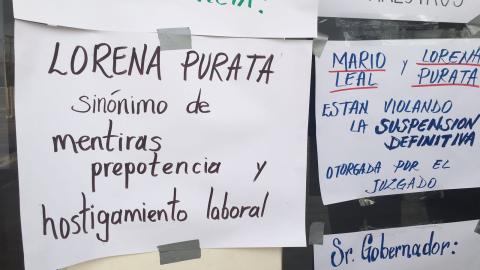 LORENA PURATA
sinónimo de
mentiras
prepotencia y
hostigamiento laboral
MARIO LEAL y LORENA PURATA
ESTAN VIOLANDO
LA SUSPENSION
DEFINITIVA
OTORGADA POR EL
JUZGADO
Sr. Gobernador: